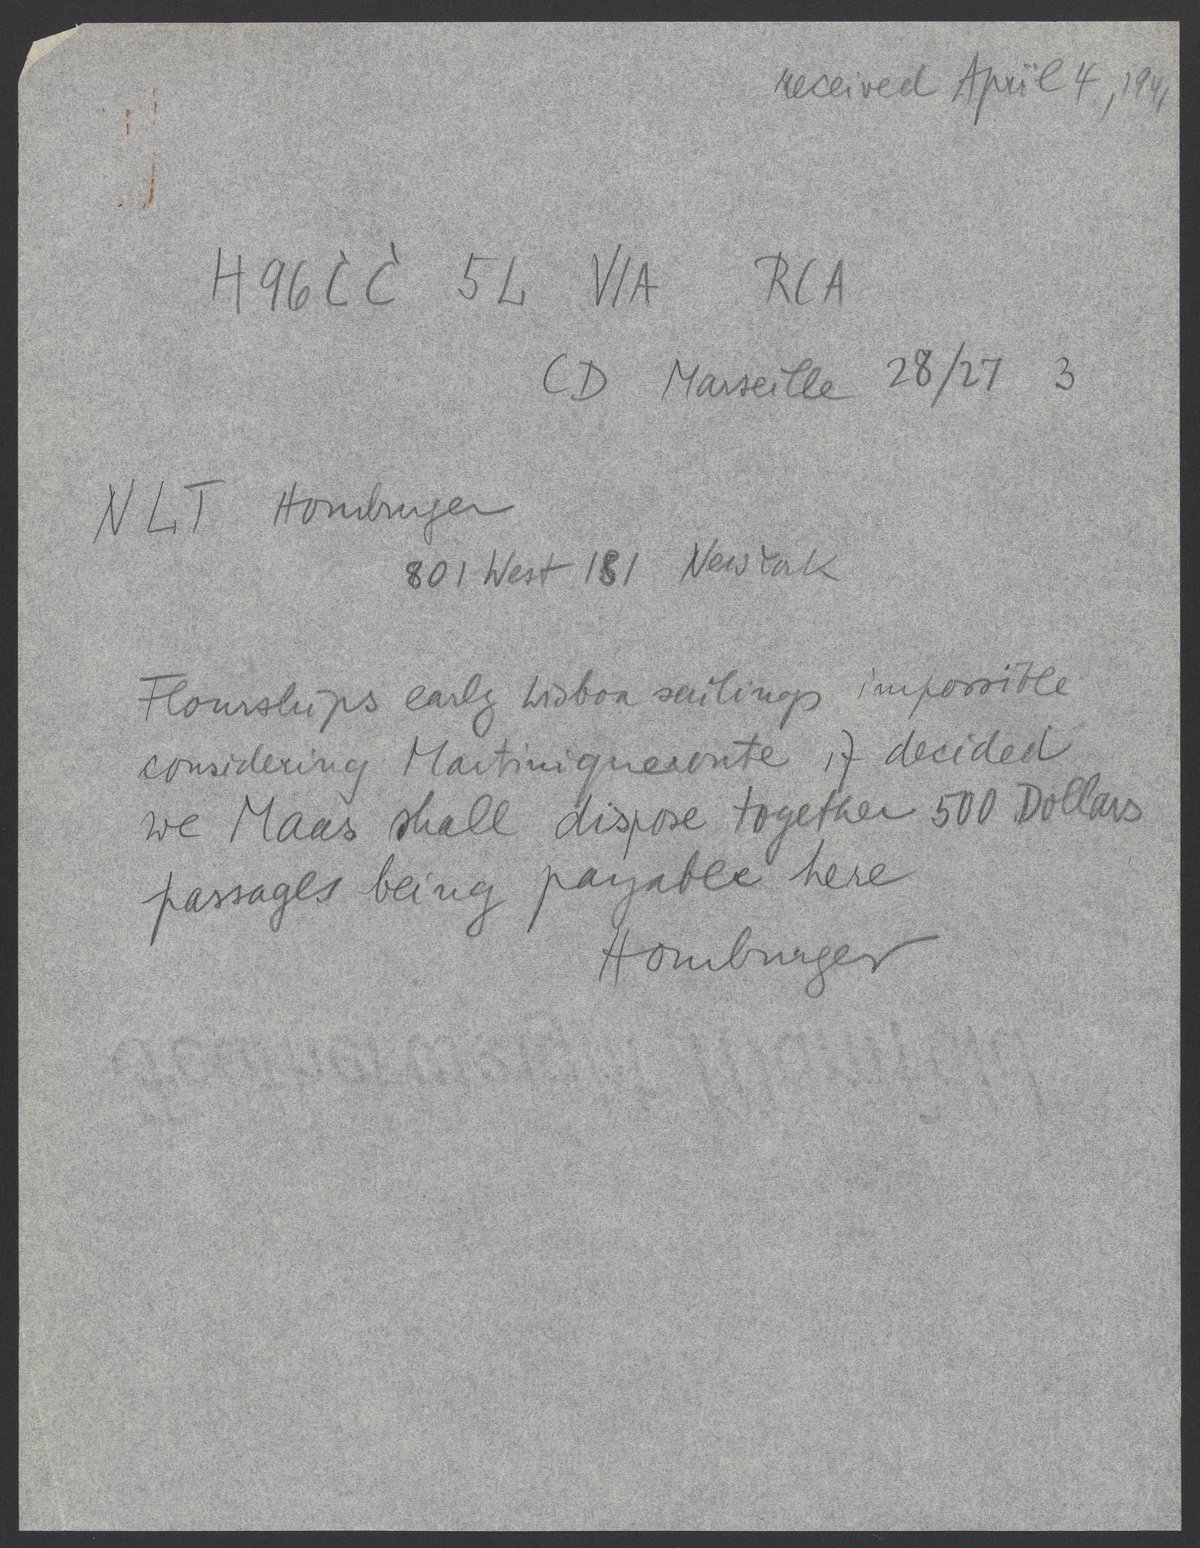 received April 4, 1941
H96CC 5L VIA RCA
CD Marseille 28/27 3
NLT Homburger
801 West 181 New York
Flourships early Lisboa sailings impossible
considering Martiniqueroute if decided
we Maas shall dispose together 500 Dollars
passages being payable here
Homburger